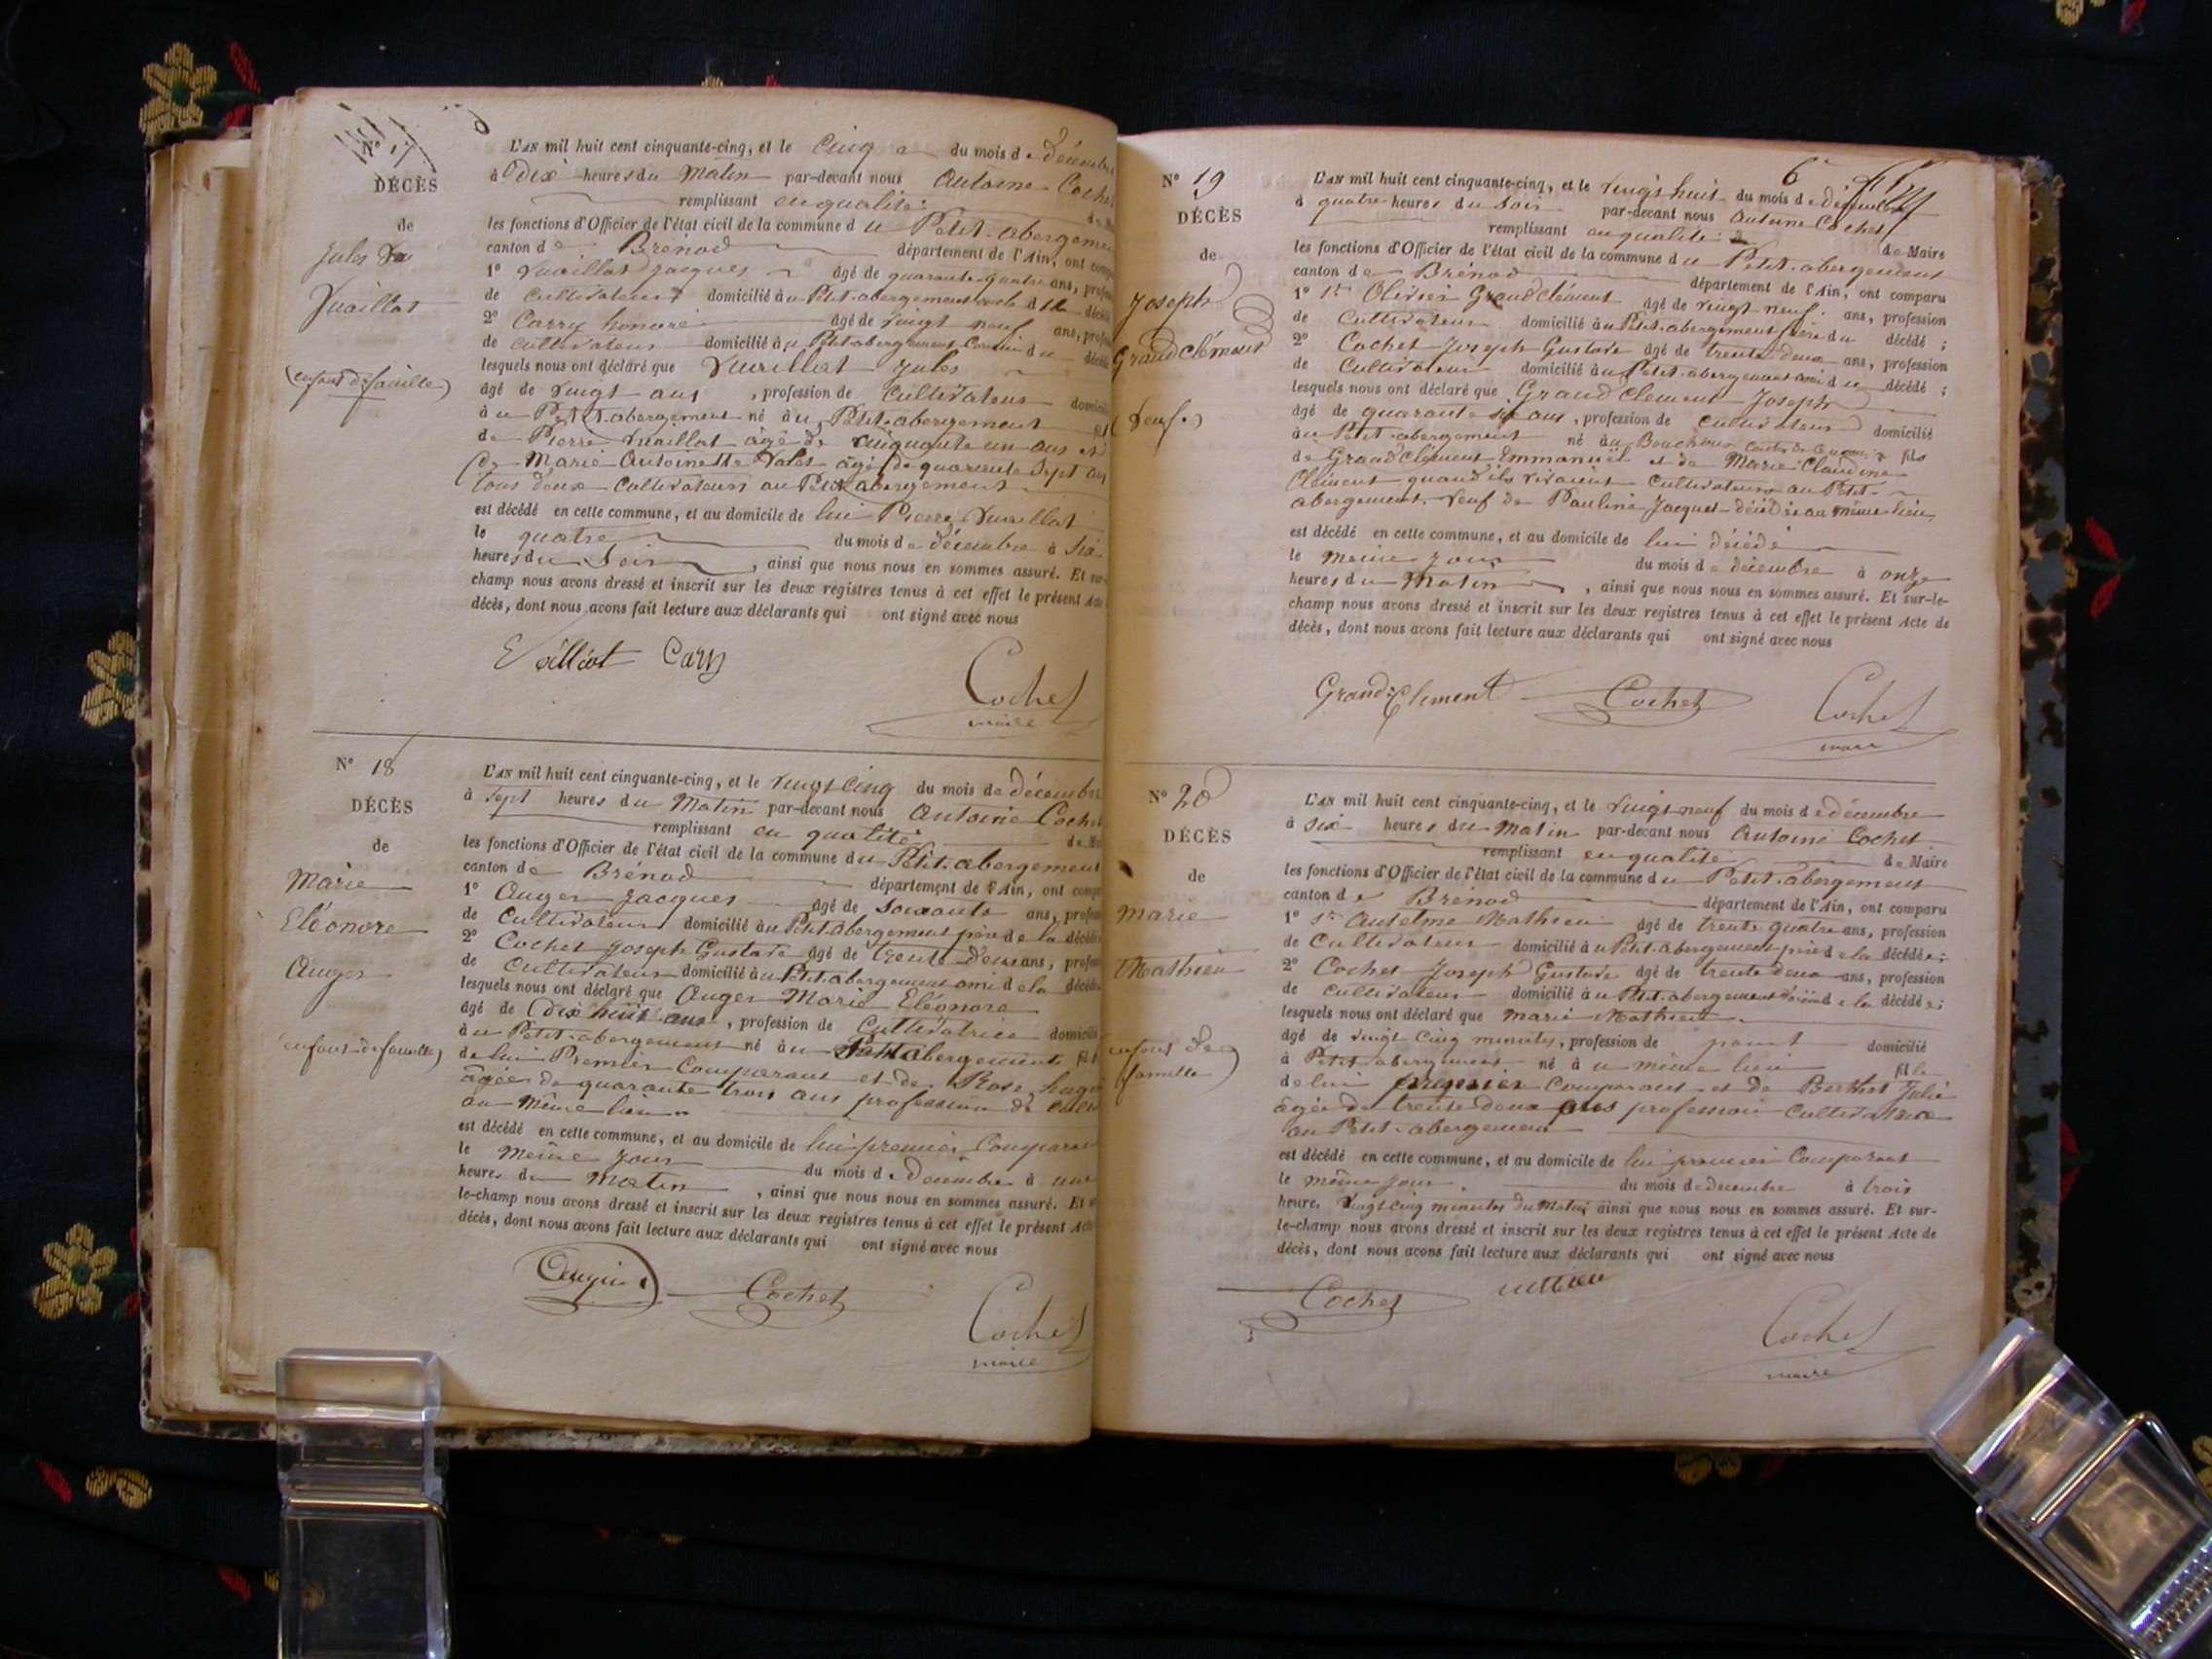 N° 17
DÉCÈS
de
Jules
Vuaillat
(enfant de famille)
L'AN mil huit cent cinquante-cinq, et le cinq du mois de décembre
à dix heures du matin par-devant nous Antoine Cochet
remplissant en qualité
les fonctions d'Officier de l'état civil de la commune du Petit-abergement
canton de Brénod département de l'Ain, ont comp
1° Vuaillat Jacques âgé de quarante quatre ans, profes
de cultivateur domicilié au Petit-abergement oncle du décédé
2° Carry honoré âgé de vingt neuf ans, profes
de cultivateur domicilié au Petit abergement cousin du décédé
lesquels nous ont déclaré que Vuaillat Jules
âgé de vingt ans, profession de cultivateur domicilié
à u Petit abergement né à u Petit-abergement fils
de Pierre Vuaillat âgé de cinquante un ans et
de Marie Antoinette Valet âgé de quarante sept ans
tous deux cultivateurs au Petit abergement
est décédé en cette commune, et au domicile de lui Pierre Vuaillat
le quatre du mois de décembre à six
heures du Soir, ainsi que nous nous en sommes assuré. Et sur-
champ nous avons dressé et inscrit sur les deux registres tenus à cet effet le présent Acte
décès, dont nous avons fait lecture aux déclarants qui ont signé avec nous
Carry
Cochet
maire
N° 18
DÉCÈS
de
Marie
Eléonore
Auger
enfant de famille)
L'AN mil huit cent cinquante-cinq, et le vingt cinq du mois de décembre
à sept heures du Matin par-devant nous Antoine Cochet
remplissant en qualité
les fonctions d'Officier de l'état civil de la commune du Petit-abergement
canton de Brénod département de l'Ain, ont comp
1° Auger Jacques âgé de soixante ans, profes
de cultivateur domicilié au Petit-abergement père de la décédée
2° Cochet Joseph Gustave âgé de trente deux ans, profes
de cultivateur domicilié au Petit-abergement ami de la décédée
lesquels nous ont déclaré que Auger Marie Eléonore
âgé de dix huit ans, profession de Cultivatrice domicilié
à u Petit-abergement né à u Petit abergement
de lui Premier Comparant et de Rose
âgée de quarante trois ans profession de
au même lieu
est décédé en cette commune, et au domicile de lui premier Comparant
le même jour du mois de Décembre à une
heure du matin, ainsi que nous nous en sommes assuré. Et
le-champ nous avons dressé et inscrit sur les deux registres tenus à cet effet le présent Acte
décès, dont nous avons fait lecture aux déclarants qui ont signé avec nous
Cochet
Cochet
maire
6
N° 19
DÉCÈS
de
Joseph
Grandclément
(Veuf.)
L'AN mil huit cent cinquante-cinq, et le vingt huit du mois de décembre
à quatre heures du Soir par-devant nous Antoine Cochet
remplissant en qualité de Maire
les fonctions d'Officier de l'état civil de la commune du Petit-abergement
canton de Brénod département de l'Ain, ont comparu
1° Sr Olivier Grandclément âgé de vingt neuf ans, profession
de Cultivateur domicilié au Petit-abergement frère du décédé ;
2° Cochet Joseph Gustave âgé de trente deux ans, profession
de Cultivateur domicilié au Petit-abergement ami du décédé ;
lesquels nous ont déclaré que Grandclement Joseph
âgé de quarante six ans, profession de cultivateur domicilié
à u Petit-abergement né au Bouchoux fils
de Grandclément Emmanuel et de Marie Claudine
Clément quand ils vivaient Cultivateurs au Petit-
abergement. veuf de Pauline Jacquet décédée au même lieu
est décédé en cette commune, et au domicile de lui décédé
le même jour du mois de décembre à onze
heures du Matin, ainsi que nous nous en sommes assuré. Et sur-le-
champ nous avons dressé et inscrit sur les deux registres tenus à cet effet le présent Acte de
décès, dont nous avons fait lecture aux déclarants qui ont signé avec nous
Grand-Clement Cochet
Cochet
maire
N° 20
DÉCÈS
de
Marie
Mathieu
enfant de
famille)
L'AN mil huit cent cinquante-cinq, et le vingt neuf du mois de décembre
à six heures du Matin par-devant nous Antoine Cochet
remplissant en qualité de Maire
les fonctions d'Officier de l'état civil de la commune du Petit-abergement
canton de Brénod département de l'Ain, ont comparu
1° Sr Antelme Mathieu âgé de trente quatre ans, profession
de Cultivateur domicilié au Petit-abergement père de la décédée ;
2° Cochet Joseph Gustave âgé de trente deux ans, profession
de Cultivateur domicilié au Petit-abergement voisin de la décédée ;
lesquels nous ont déclaré que Marie Mathieu
âgé de vingt cinq minutes, profession de point domicilié
à Petit-abergement né à u même lieu fille
de lui premier Comparant et de Berthet Julie
âgée de trente deux ans profession Cultivatrice
au Petit-abergement
est décédé en cette commune, et au domicile de lui premier Comparant
le même jour du mois de décembre à trois
heures vingt cinq minutes du Matin ainsi que nous nous en sommes assuré. Et sur-
le-champ nous avons dressé et inscrit sur les deux registres tenus à cet effet le présent Acte de
décès, dont nous avons fait lecture aux déclarants qui ont signé avec nous
Cochet
Cochet
maire